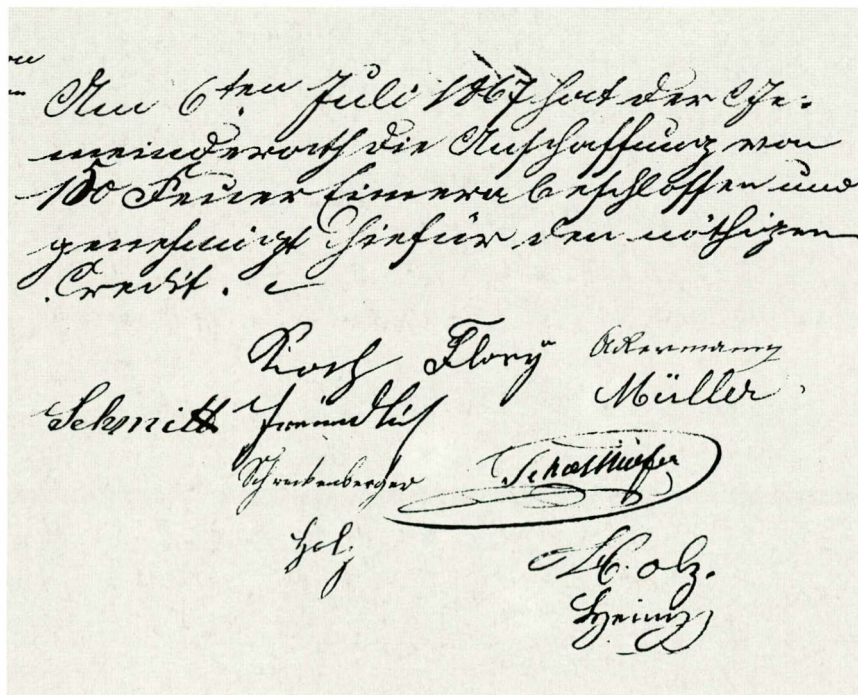 Am 6ten Juli 1867 hat der Ge-
meinderath die Anschaffung von
150 Feuer Eimern beschlossen und
genehmigt hiefür den nöthigen
Credit.
Koch Flory Akermann
Schmitt Freundlich Müller
Schreckenberger
Holz
H. olz.
Heinz